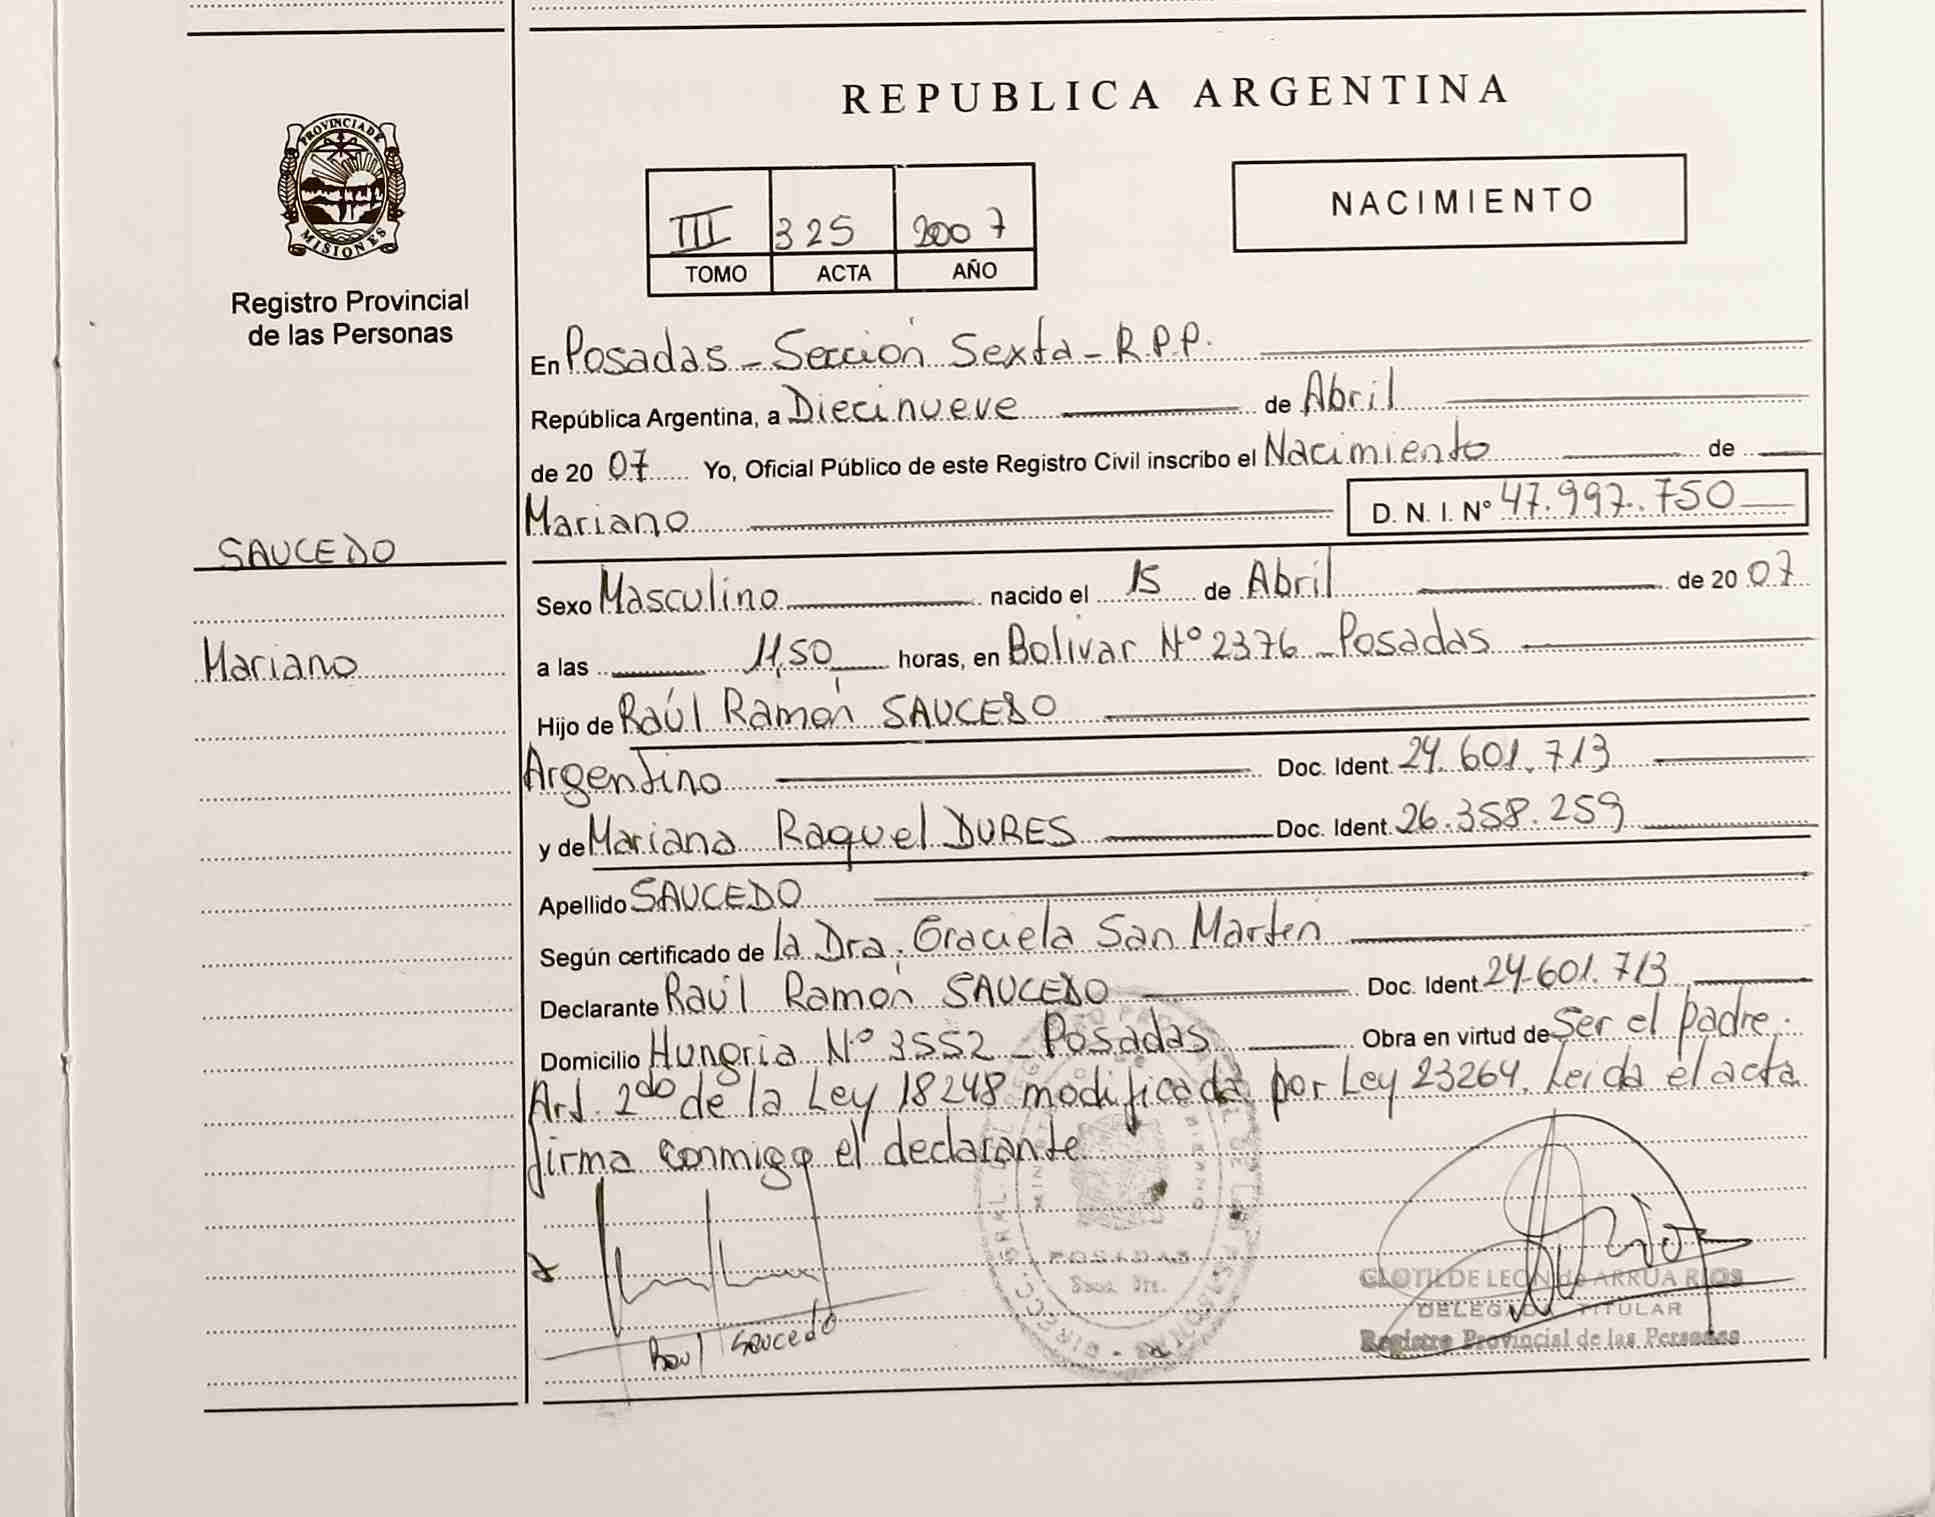 REPUBLICA ARGENTINA
PROVINCIA DE
MISIONES
Registro Provincial
de las Personas
III 325 2007
TOMO ACTA AÑO
NACIMIENTO
En Posadas - Sección Sexta - R.P.P.
República Argentina, a Diecinueve de Abril
de 20 07 Yo, Oficial Público de este Registro Civil inscribo el Nacimiento de
Mariano D. N. I. Nº 47.997.750
SAUCEDO
Mariano
Sexo Masculino nacido el 15 de Abril de 20 07
a las 11,50 horas, en Bolivar Nº 2376 - Posadas
Hijo de Raúl Ramón SAUCEDO
Argentino Doc. Ident. 24.601.713
y de Mariana Raquel DURES Doc. Ident. 26.358.259
Apellido SAUCEDO
Según certificado de la Dra. Graciela San Marten
Declarante Raúl Ramón SAUCEDO Doc. Ident. 24.601.713
Domicilio Hungria Nº 3552 - Posadas Obra en virtud de Ser el padre.
Art. 2do de la Ley 18248 modificada por Ley 23264. Leida el acta
firma conmigo el declarante
Raul Saucedo
POSADAS
CLOTILDE LEON de ARRUA RIOS
DELEGADA TITULAR
Registro Provincial de las Personas